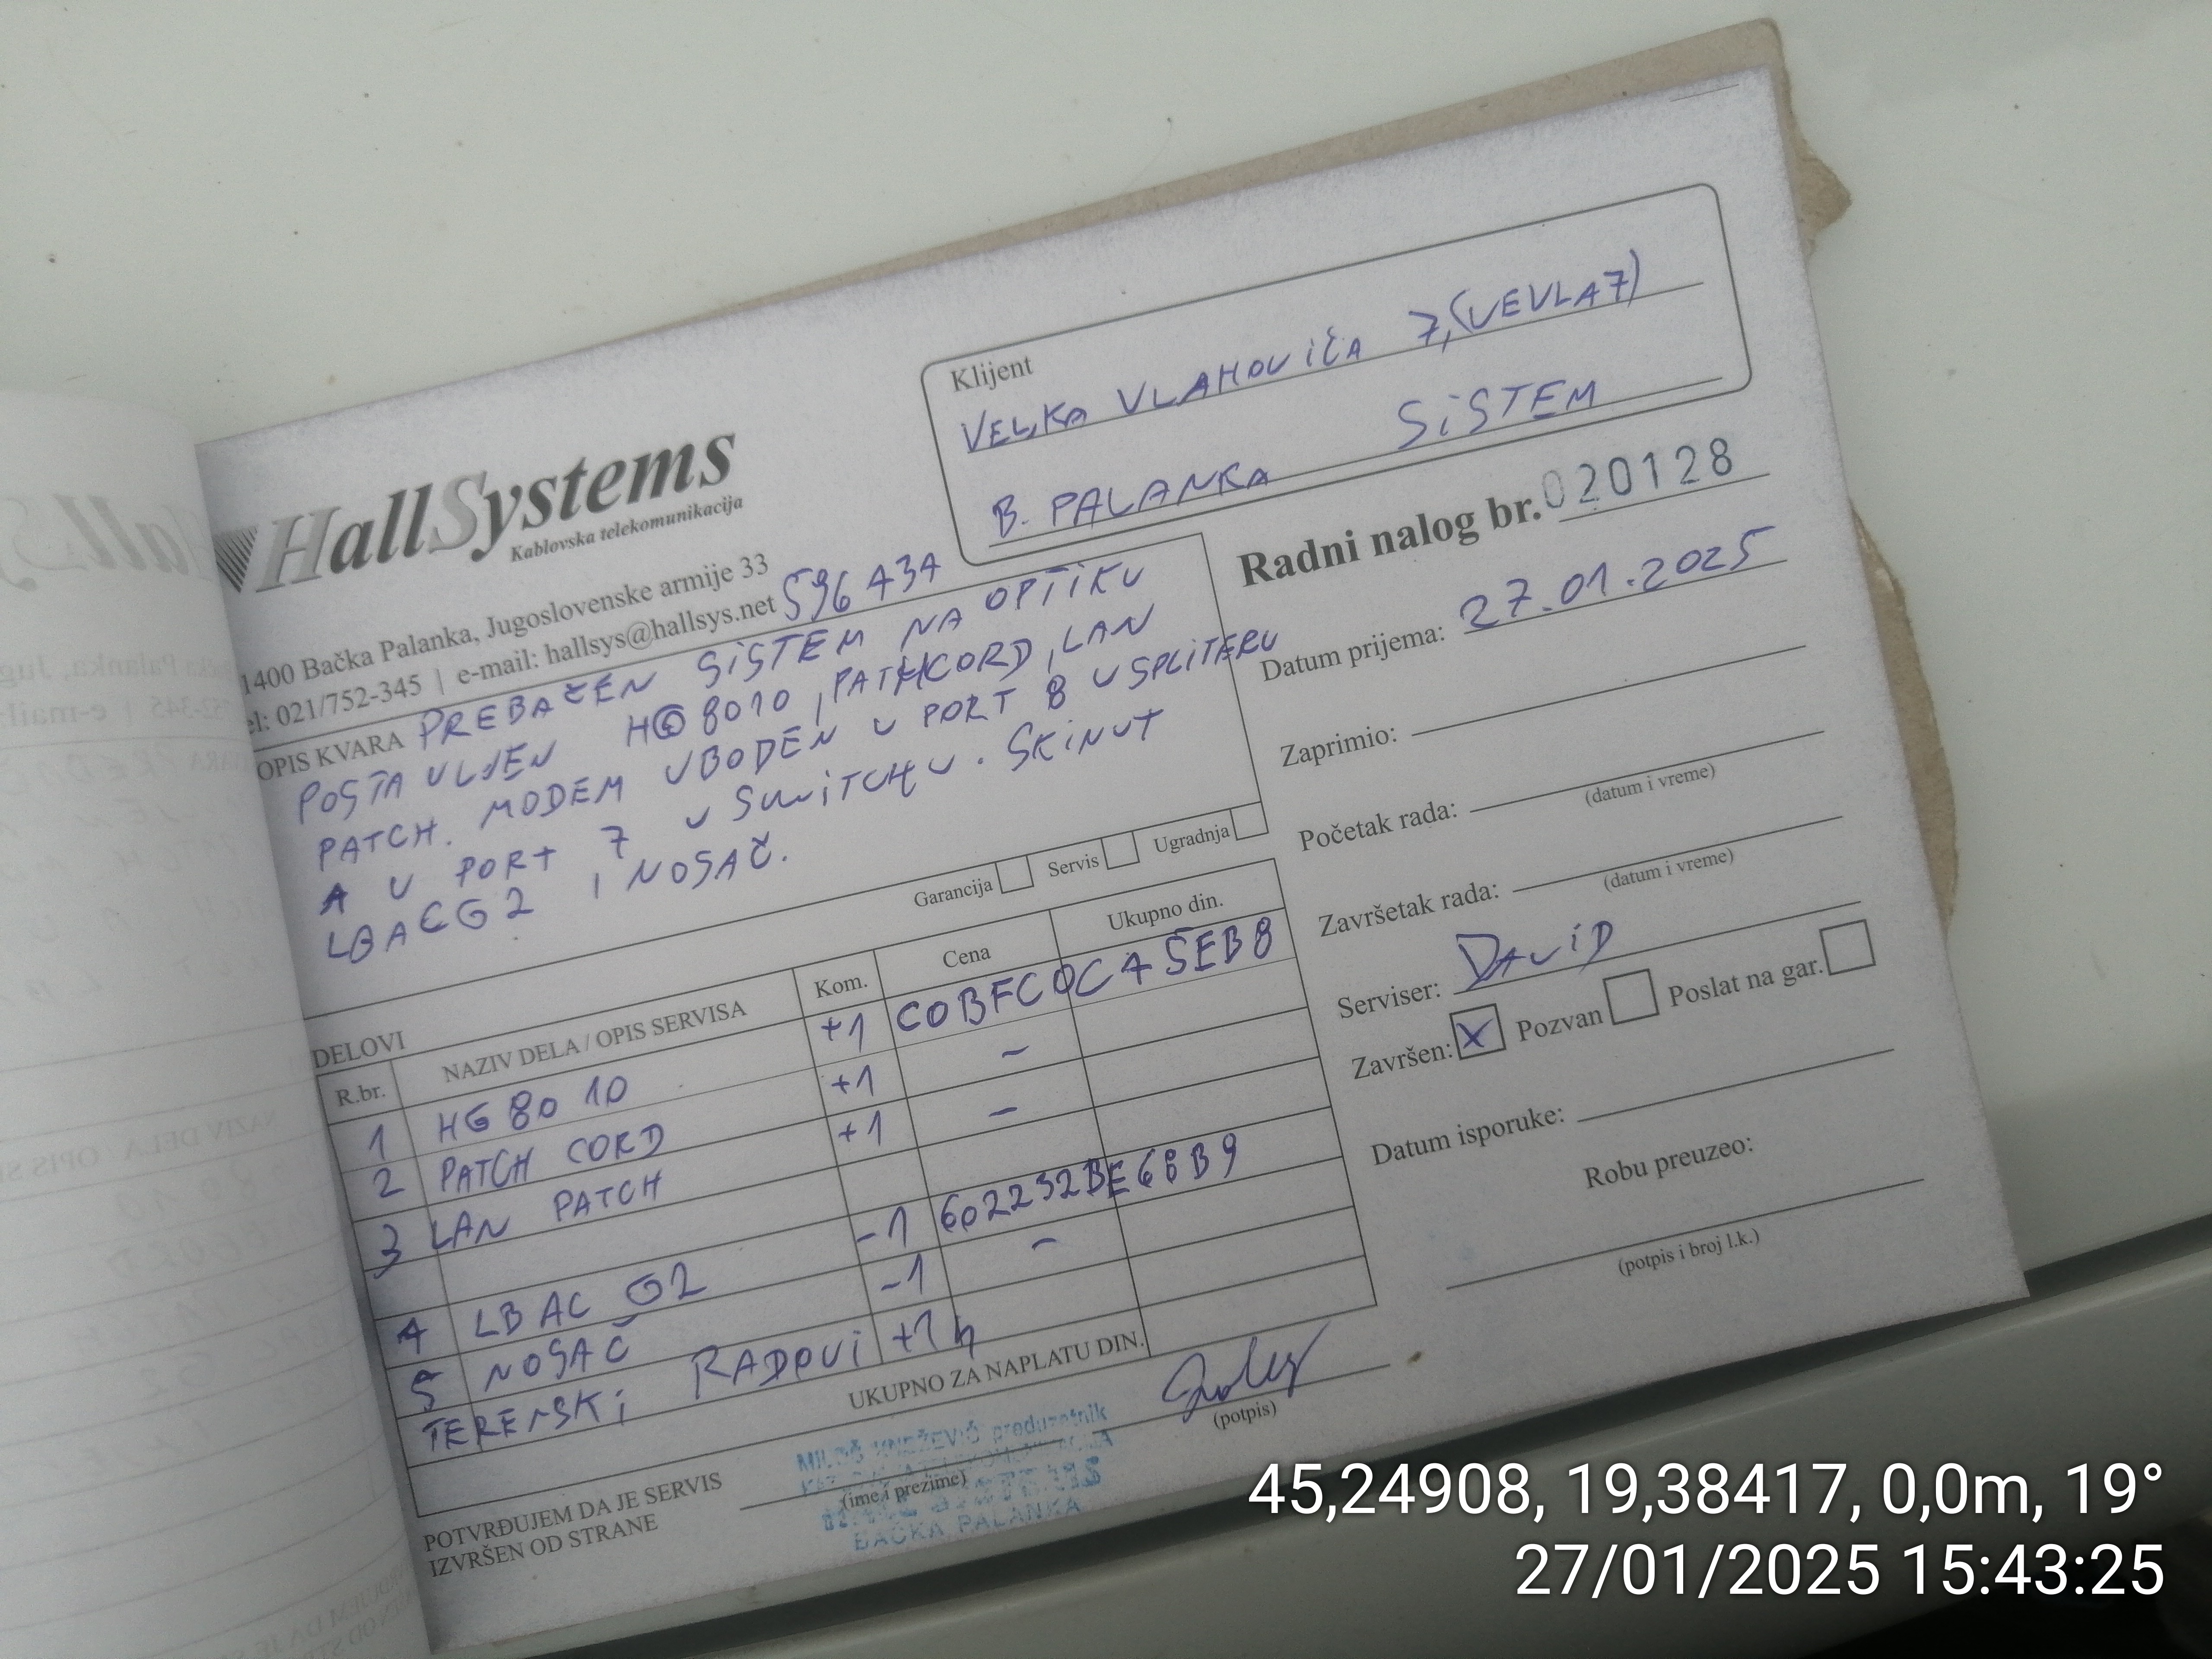 Klijent
VELJKA VLAHOVIĆA 7, (VEVLA7)
B. PALANKA SISTEM
HallSystems
Kablovska telekomunikacija
1400 Bačka Palanka, Jugoslovenske armije 33
el: 021/752-345 | e-mail: hallsys@hallsys.net 596 434
OPIS KVARA PREBAČEN SISTEM NA OPTIKU
POSTAVLJEN HG8010, PATCHCORD, LAN
PATCH. MODEM UBODEN U PORT 8 U SPLITERU
A U PORT 7 U SWITCHU. SKINUT
LBACG2 I NOSAČ.
Garancija Servis Ugradnja
Radni nalog br. 020128
Datum prijema: 27.01.2025
Zaprimio:
Početak rada:
(datum i vreme)
Završetak rada:
(datum i vreme)
Serviser: DAVID
Završen: X Pozvan Poslat na gar.
Datum isporuke:
Robu preuzeo:
(potpis i broj l.k.)
DELOVI
R.br. NAZIV DELA / OPIS SERVISA Kom. Cena Ukupno din.
1 HG8010 +1 C0BFC0CA5EB8
2 PATCH CORD +1 –
3 LAN PATCH +1 –
4 LBAC G2 -1 602232BE68B9
5 NOSAČ -1 –
TERENSKI RADOVI +1h
UKUPNO ZA NAPLATU DIN.
POTVRĐUJEM DA JE SERVIS
IZVRŠEN OD STRANE
MILOŠ KNEŽEVIĆ preduzetnik
(ime i prezime)
BAČKA PALANKA
(potpis)
45,24908, 19,38417, 0,0m, 19°
27/01/2025 15:43:25